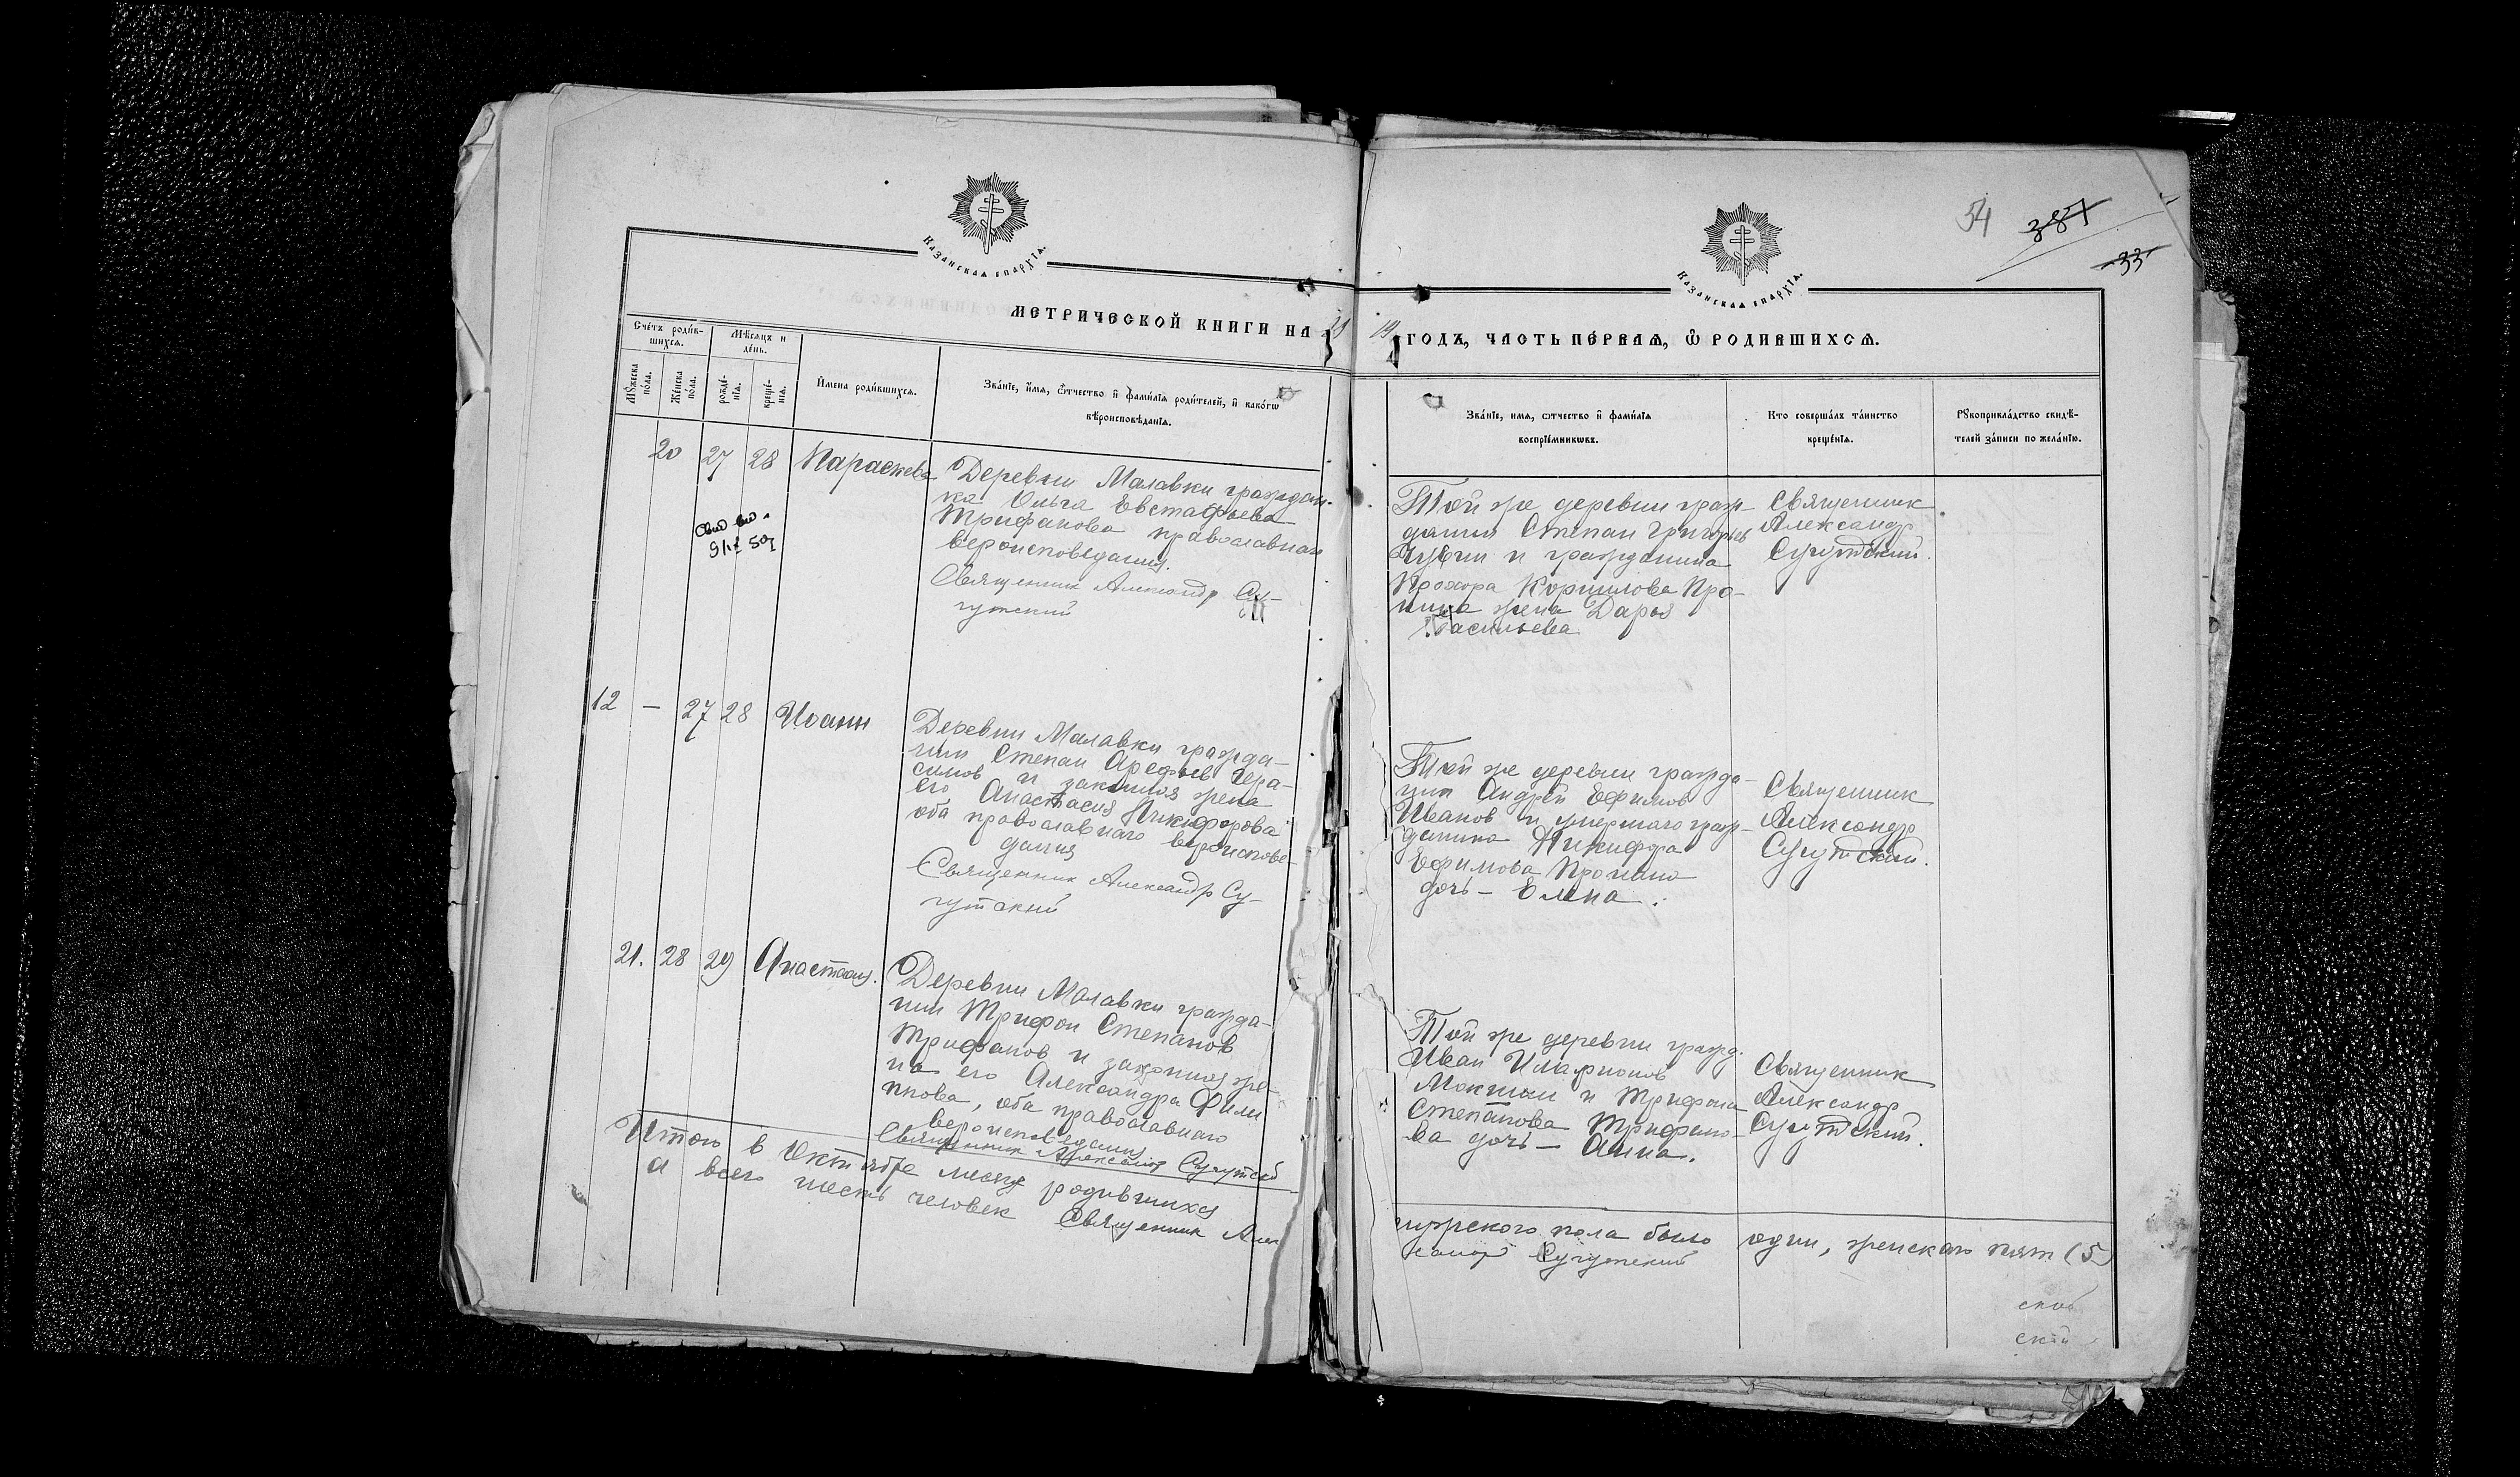 Казанская епархїа.
МЕТРИЧЕСКОЙ КНИГИ НА 19
Сче́тъ роди́в-
шихсѧ.
Мѣ́сѧцъ и
де́нь.
Мꙋ́жеска
по́ла.
Же́нска
по́ла.
рожде́-
нїѧ.
креще́-
нїѧ.
И҆мена роди́вшихсѧ.
Зва́нїе, и҆́мѧ, ѻ҆́тчество и҆ фами́лїѧ роди́телей, и҆ како́гѡ
вѣроисповѣ́данїѧ.
20 27 28 Параскева
Деревни Малавки граждан-
ка Ольга Евстафьева
Трифанова православнаг
вероисповедания.
Священник Александр Су-
гутский
12 — 27 28 Иоанн
Деревни Малавки гражда-
нин Степан Арефьев Гера-
симов и законная жена
его Анастасия Никифорова
оба православнаго вероиспове-
дания
Священник Александр Су-
гутский
21. 28 29 Анастасия.
Деревни Малавки гражда-
нин Трифон Степанов
Трифанов и законная же-
на его Александра Фили
пова, оба православнаго
вероисповедания
Священник Александр Сугутский
Итого в Октябре месяце родившихся
а всего шесть человек Священник Алек
Казанская епархїа.
54 387
33
19 ГОДЪ, ЧАСТЬ ПЕ́РВАѦ, Ѽ РОДИВШИХСѦ.
Зва́нїе, имѧ, ѻтчество и҆ фами́лїѧ
воспрїе́мникѡвъ.
Кто соверша́лъ та́инство
креще́нїѧ.
Рꙋкоприкла́дство свидѣ́-
телей за́писи по жела́нїю.
Той же деревни граж-
данин Степан Григорьев
и гражданина
Прохора Корнилова Про-
нина жена Дарья
Васильева
Священник
Александр
Сугутский.
Той же деревни гражда-
нин Андрей Ефимов
Иванов и умершаго граж-
данина Никифора
Ефимова Пронина
дочь — Елена.
Священник
Александр
Сугутский.
Той же деревни гражд.
Иван Иларионов
Мокшин и Трифона
Степанова Трифано-
ва дочь — Анна.
Священник
Александр
Сугутский.
мужского пола было один, женскаго пять (5)
сандр Сугутский
ский